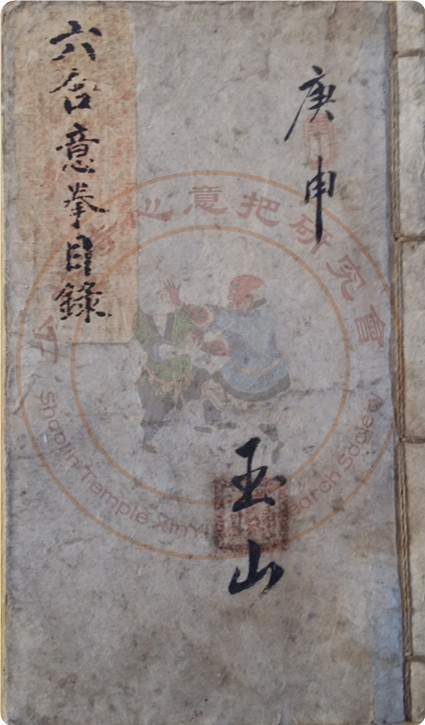 庚申
玉山
六合意拳目錄
心意把研究會
Shaolin Temple XinYi
Society